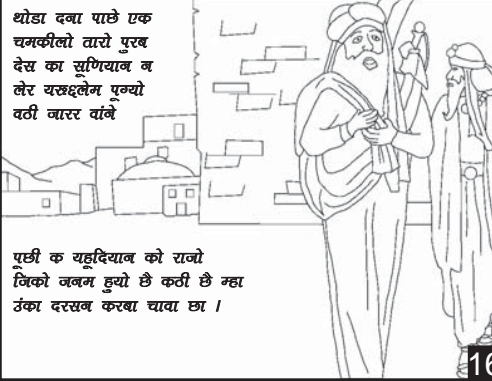 थोडा दना पाछे एक
चमकीलो तारो पुरब
देस का सूणियान न
लेर यरूद्दलेम पूग्यो
वठी जारर वांने
पूछी क यहूदियान को राजो
जिको जनम हुयो छै कठी छै म्हा
उंका दरसन करबा चावा छा ।
16